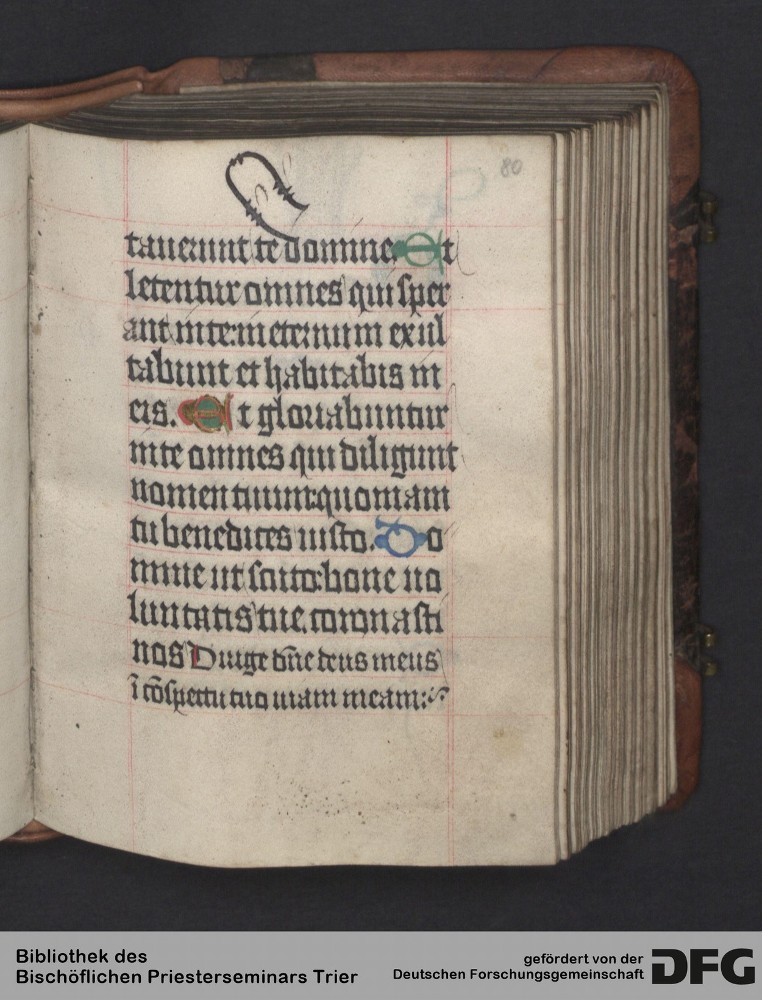 80
tauerunt te domine. Et
letentur omnes qui sper
ant in te: in eternum exul
tabunt et habitabis in
eis. Et gloriabuntur
in te omnes qui diligunt
nomen tuum: quoniam
tu benedices iusto. Do
mine ut scuto: bone uo
luntatis tue. coronasti
nos Dirige dn̄e deus meus
ī cōspectu tuo uiam meam:
Bibliothek des
Bischöflichen Priesterseminars Trier
gefördert von der
Deutschen Forschungsgemeinschaft
DFG